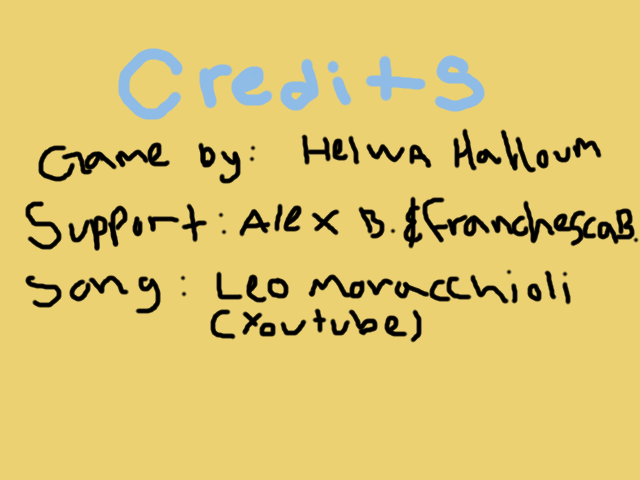 Credits
Game by: Helwa Halloum
Support: Alex B. & Franchesca B.
Song: Leo Moracchioli
(Youtube)